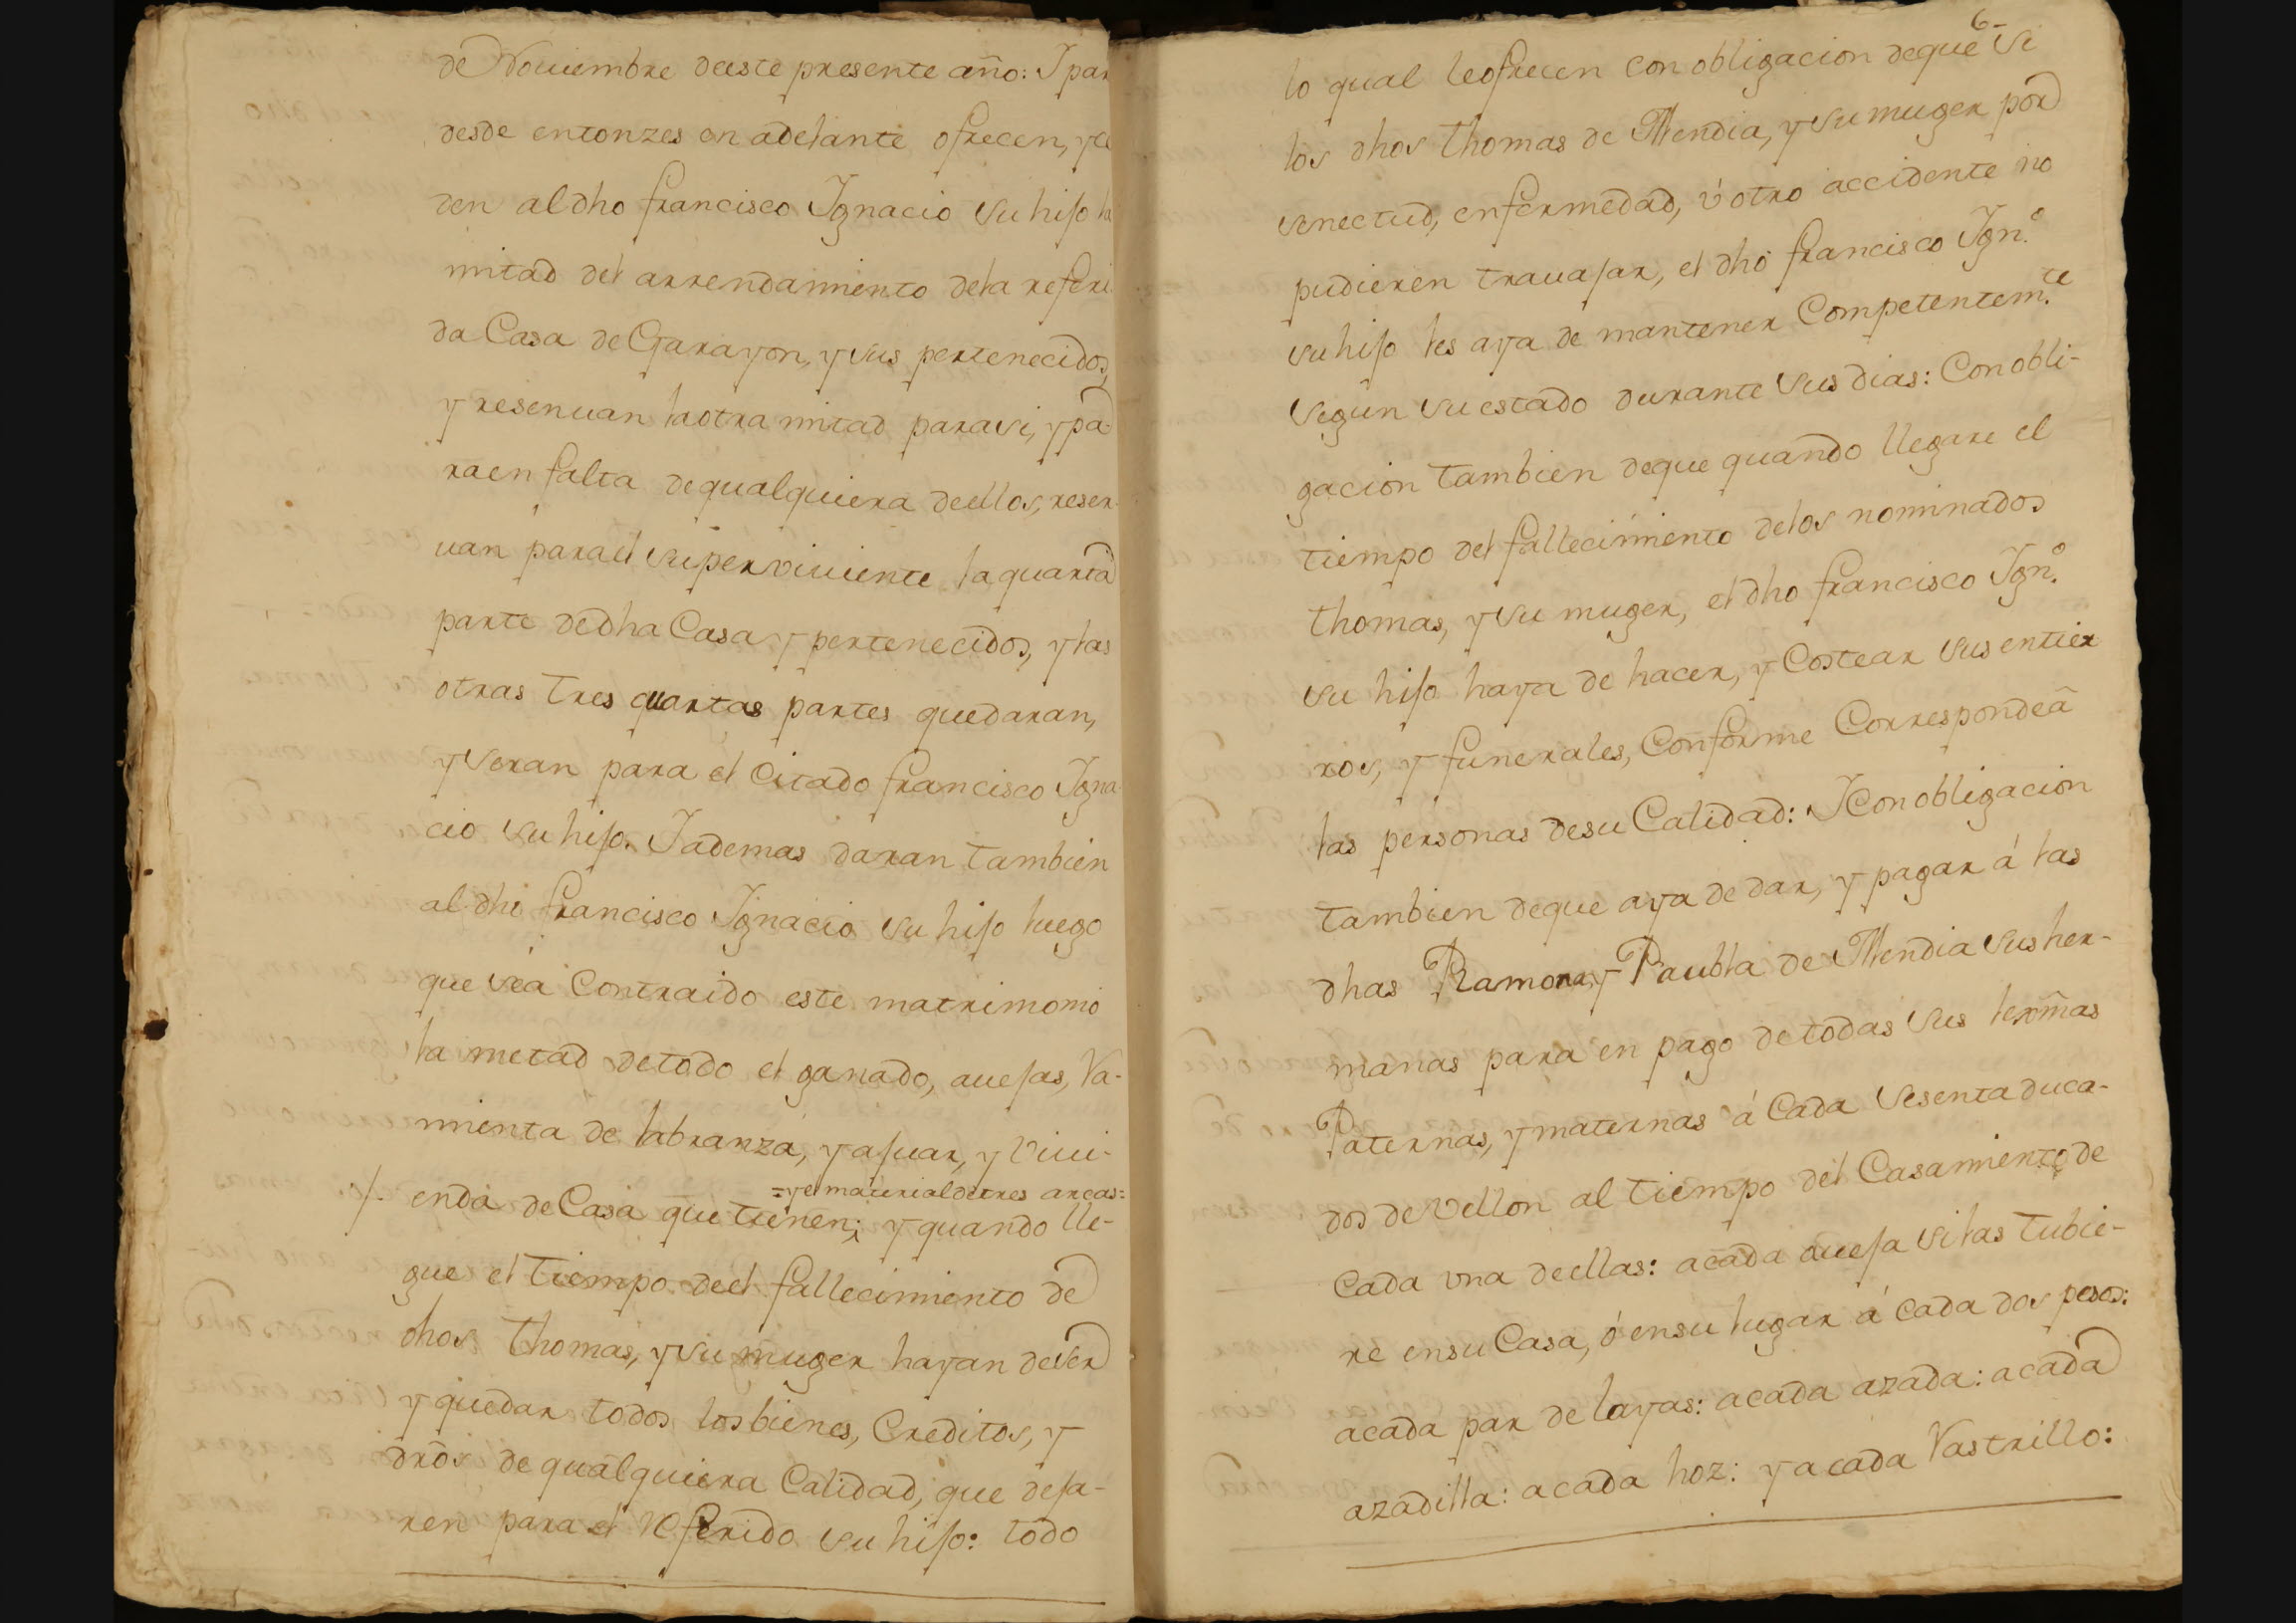 de Nouiembre deeste presente año: I par
desde entonzes en adelante ofrecen, y ce
den al dho francisco Ignacio su hijo la
mitad del arrendamiento dela referi
da Casa de Garayon, y sus pertenecidos,
y reseruan la otra mitad para si, y pa-
ra en falta de qualquiera de ellos, reser-
uan para el superviuiente la quarta
parte de dha Casa y pertenecidos, y las
otras tres quartas partes quedaran,
y seran para el Citado francisco Igna-
cio su hijo. I ademas daran tambien
al dho francisco Ignacio su hijo luego
que sea Contraido este matrimonio
la metad de todo el ganado, auejas, Va-
mienta de labranza, y ajuar, y Viui-
=y el material de tres arcas=
/. enda de Casa que tienen; y quando lle-
gue el tiempo de el fallecimiento de
dhos Thomas, y su muger hayan de ser
y quedar todos los bienes, Creditos, y
dros de qualquiera Calidad, que deja-
ren para el referido su hijo: todo
6-
lo qual le ofrecen con obligacion de que si
los dhos Thomas de Mendia, y su muger por
senectud, enfermedad, ú otro accidente no
pudieren trauajar, el dho francisco Ign.º
su hijo les aya de mantener Competentem.te
segun su estado durante sus dias: Con obli-
gacion tambien de que quando llegare el
tiempo del fallecimiento de los nominados
Thomas, y su muger, el dho francisco Ign.º
su hijo haya de hacer, y Costear sus entier
ros, y funerales, Conforme Corresponde â
las personas de su Calidad: I Con obligacion
tambien de que aya de dar, y pagar á las
dhas Ramona, y Paubla de Mendia sus her-
manas para en pago de todas sus lexmas
Paternas, y maternas á Cada sesenta duca-
dos de Vellon al tiempo del Casamiento de
Cada una de ellas: a cada aueja si las tubie-
re en su Casa, ó en su lugar á cada dos pesos:
a cada par de layas: a cada azada: a cada
azadilla: a cada hoz: y a cada Vastrillo: